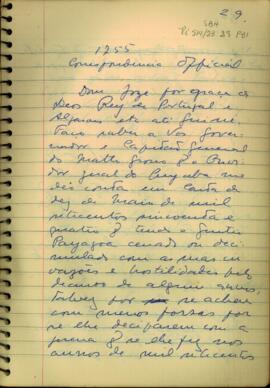 29.
SBH
Pi 54/23 29 P01
1755
Correspondencia Official
Dom Joze por graça de
Deos Rey de Portugal e
Algarves etc até Guiné.
Faço saber a Vós Gover-
nador e Capitão General
do Matto Grosso q̃ o Ouvi-
dor geral do Cuyaba me
deo conta em Carta de
dez de Maio de mil
setecentos cincoenta e
quatro q̃ tendo o Gentio
Payagoa cessado ou dec
limado com as mas in
vazões e hostilidades
de alguns annos,
talvez por se achar
com menos forsas por
se lhe deciparem com a
guerra q̃ se lhe fez nos
annos de mil setecentos